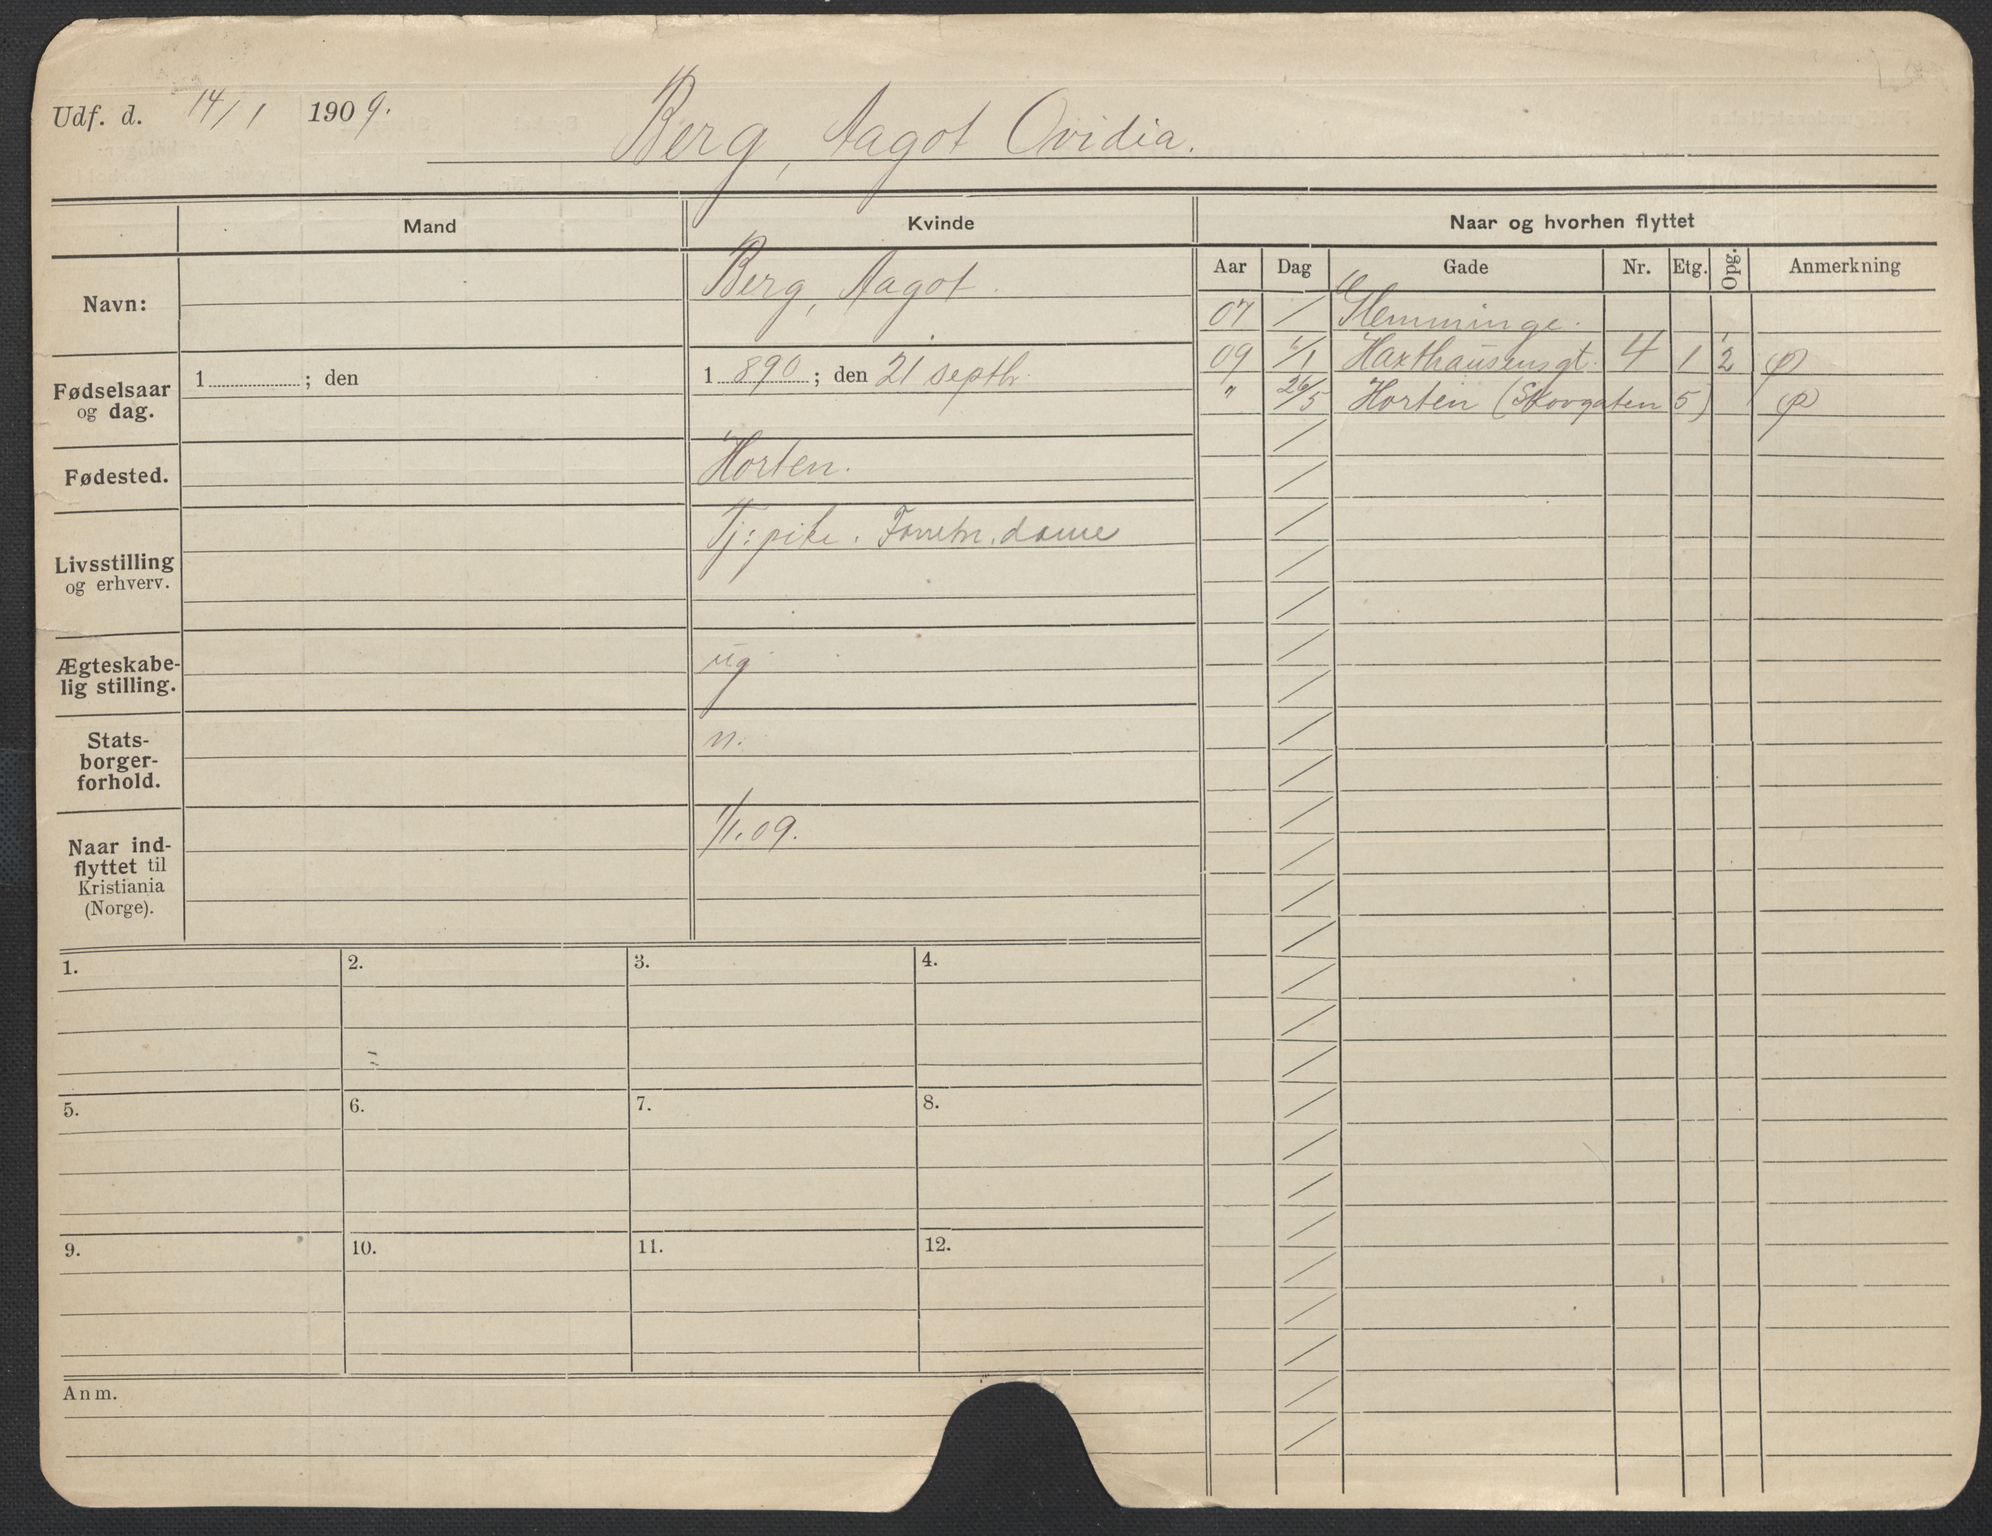 Udf. d. 14/1 1909.
Berg, Aagot Ovidia.
Mand
Kvinde
Naar og hvorhen flyttet
Aar Dag Gade Nr. Etg. Opg. Anmerkning
Navn:
Berg, Aagot.
07 / Slemminge.
09 /1 Haxthausensgt. 4 1 1/2
" 26/5 Horten (Skovgaten 5)
Fødselsaar
og dag.
1 ; den
1 890 ; den 21 septbr.
Fødested.
Horten.
Livsstilling
og erhverv.
Tj: pike. Forretn. dame
Ægteskabe-
lig stilling.
ug
Stats-
borger-
forhold.
n.
Naar ind-
flyttet til
Kristiania
(Norge).
1/1.09.
1. 2. 3. 4.
5. 6. 7. 8.
9. 10. 11. 12.
Anm.